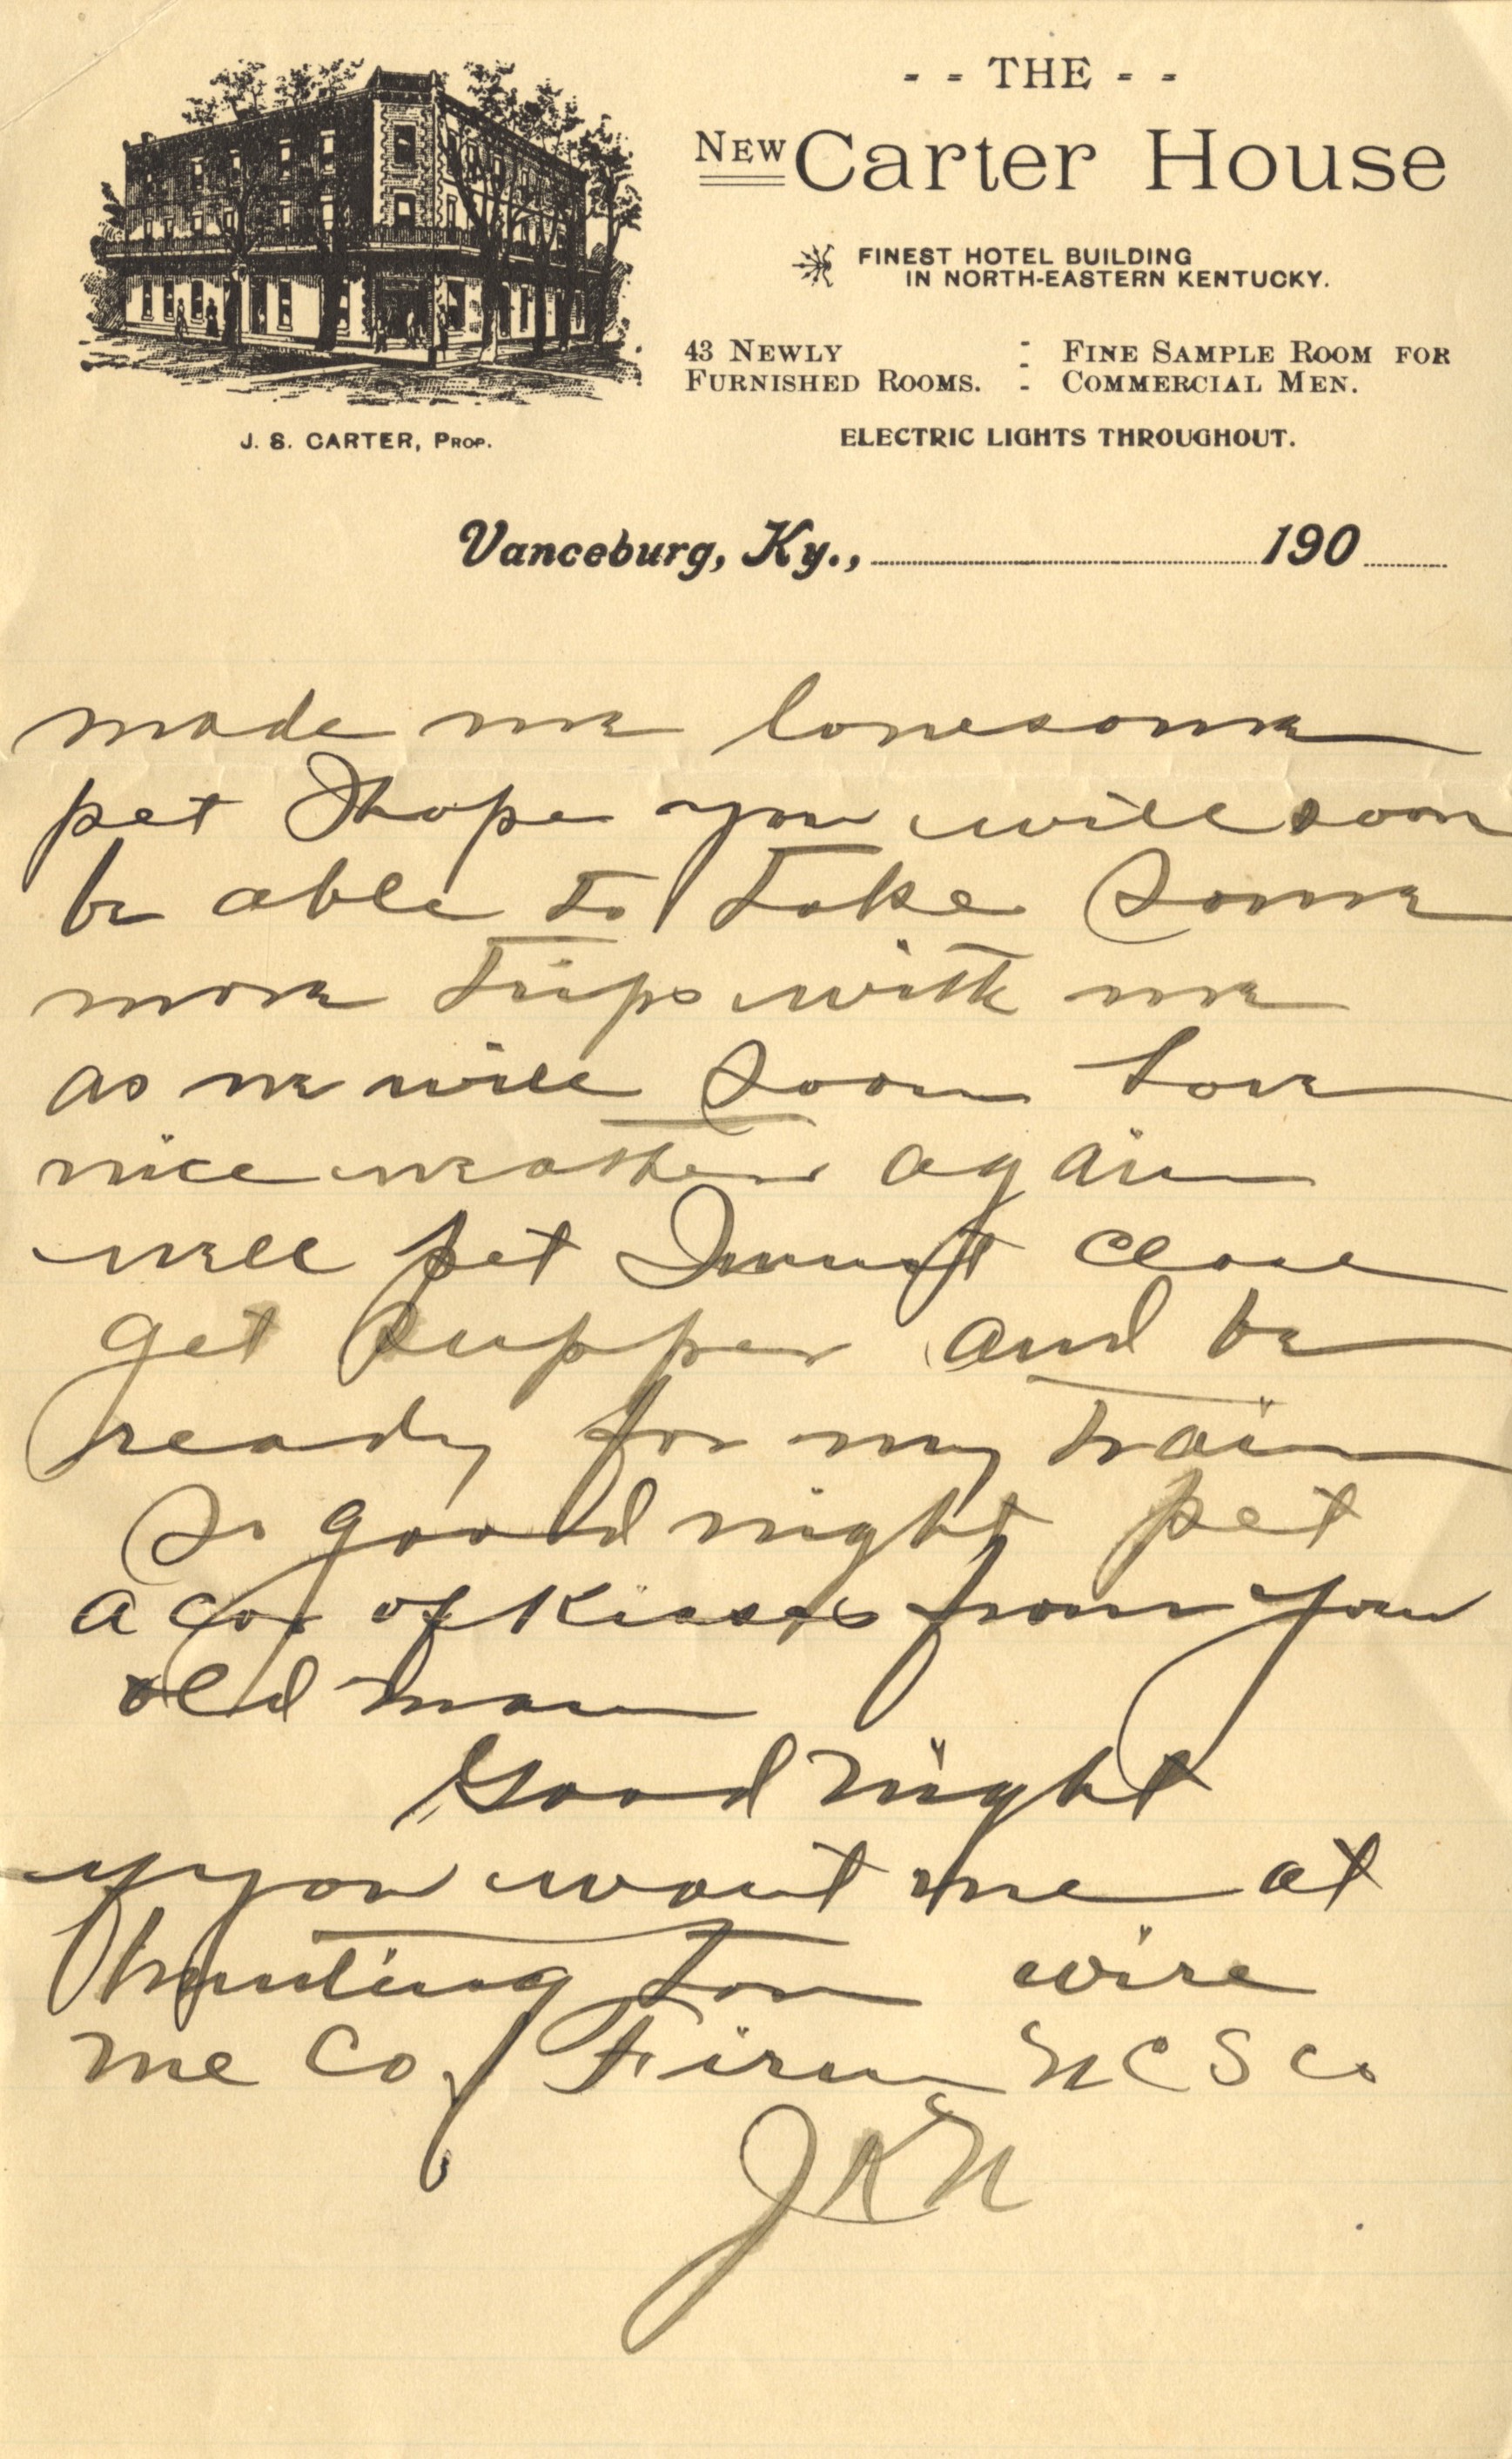 - - THE - -
NEW Carter House
FINEST HOTEL BUILDING
IN NORTH-EASTERN KENTUCKY.
43 NEWLY
FURNISHED ROOMS.
FINE SAMPLE ROOM FOR
COMMERCIAL MEN.
ELECTRIC LIGHTS THROUGHOUT.
J. S. CARTER, PROP.
Vanceburg, Ky., 190
made me lonesome
pet I hope you will soon
be able to take some
more trips with me
as we will soon have
nice weather again
well pet I must close
get supper and be
ready for my train
So good night pet
a of kisses from your
old man
Good night
you want me at
Hunting ton wire
me Co Firm N C S Co
JKN